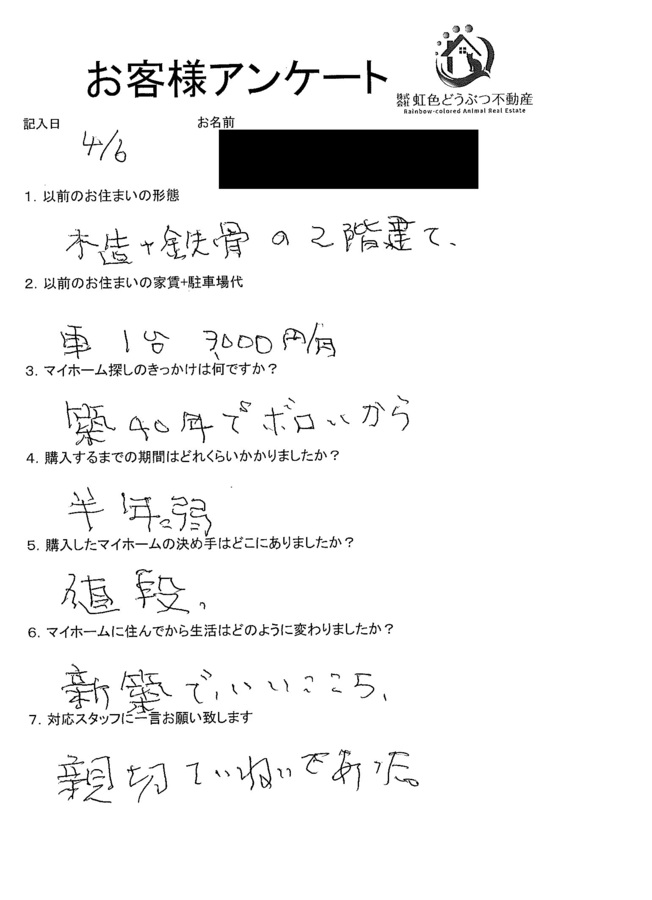 お客様アンケート
株式会社 虹色どうぶつ不動産
Rainbow-colored Animal Real Estate
記入日
お名前
4/6
1. 以前のお住まいの形態
木造+鉄骨の2階建て、
2. 以前のお住まいの家賃+駐車場代
車1台 3,000円/月
3. マイホーム探しのきっかけは何ですか?
築40年でボロいから
4. 購入するまでの期間はどれくらいかかりましたか?
半年弱
5. 購入したマイホームの決め手はどこにありましたか?
値段。
6. マイホームに住んでから生活はどのように変わりましたか?
新築で、いいここち、
7. 対応スタッフに一言お願い致します
親切ていねいであった。